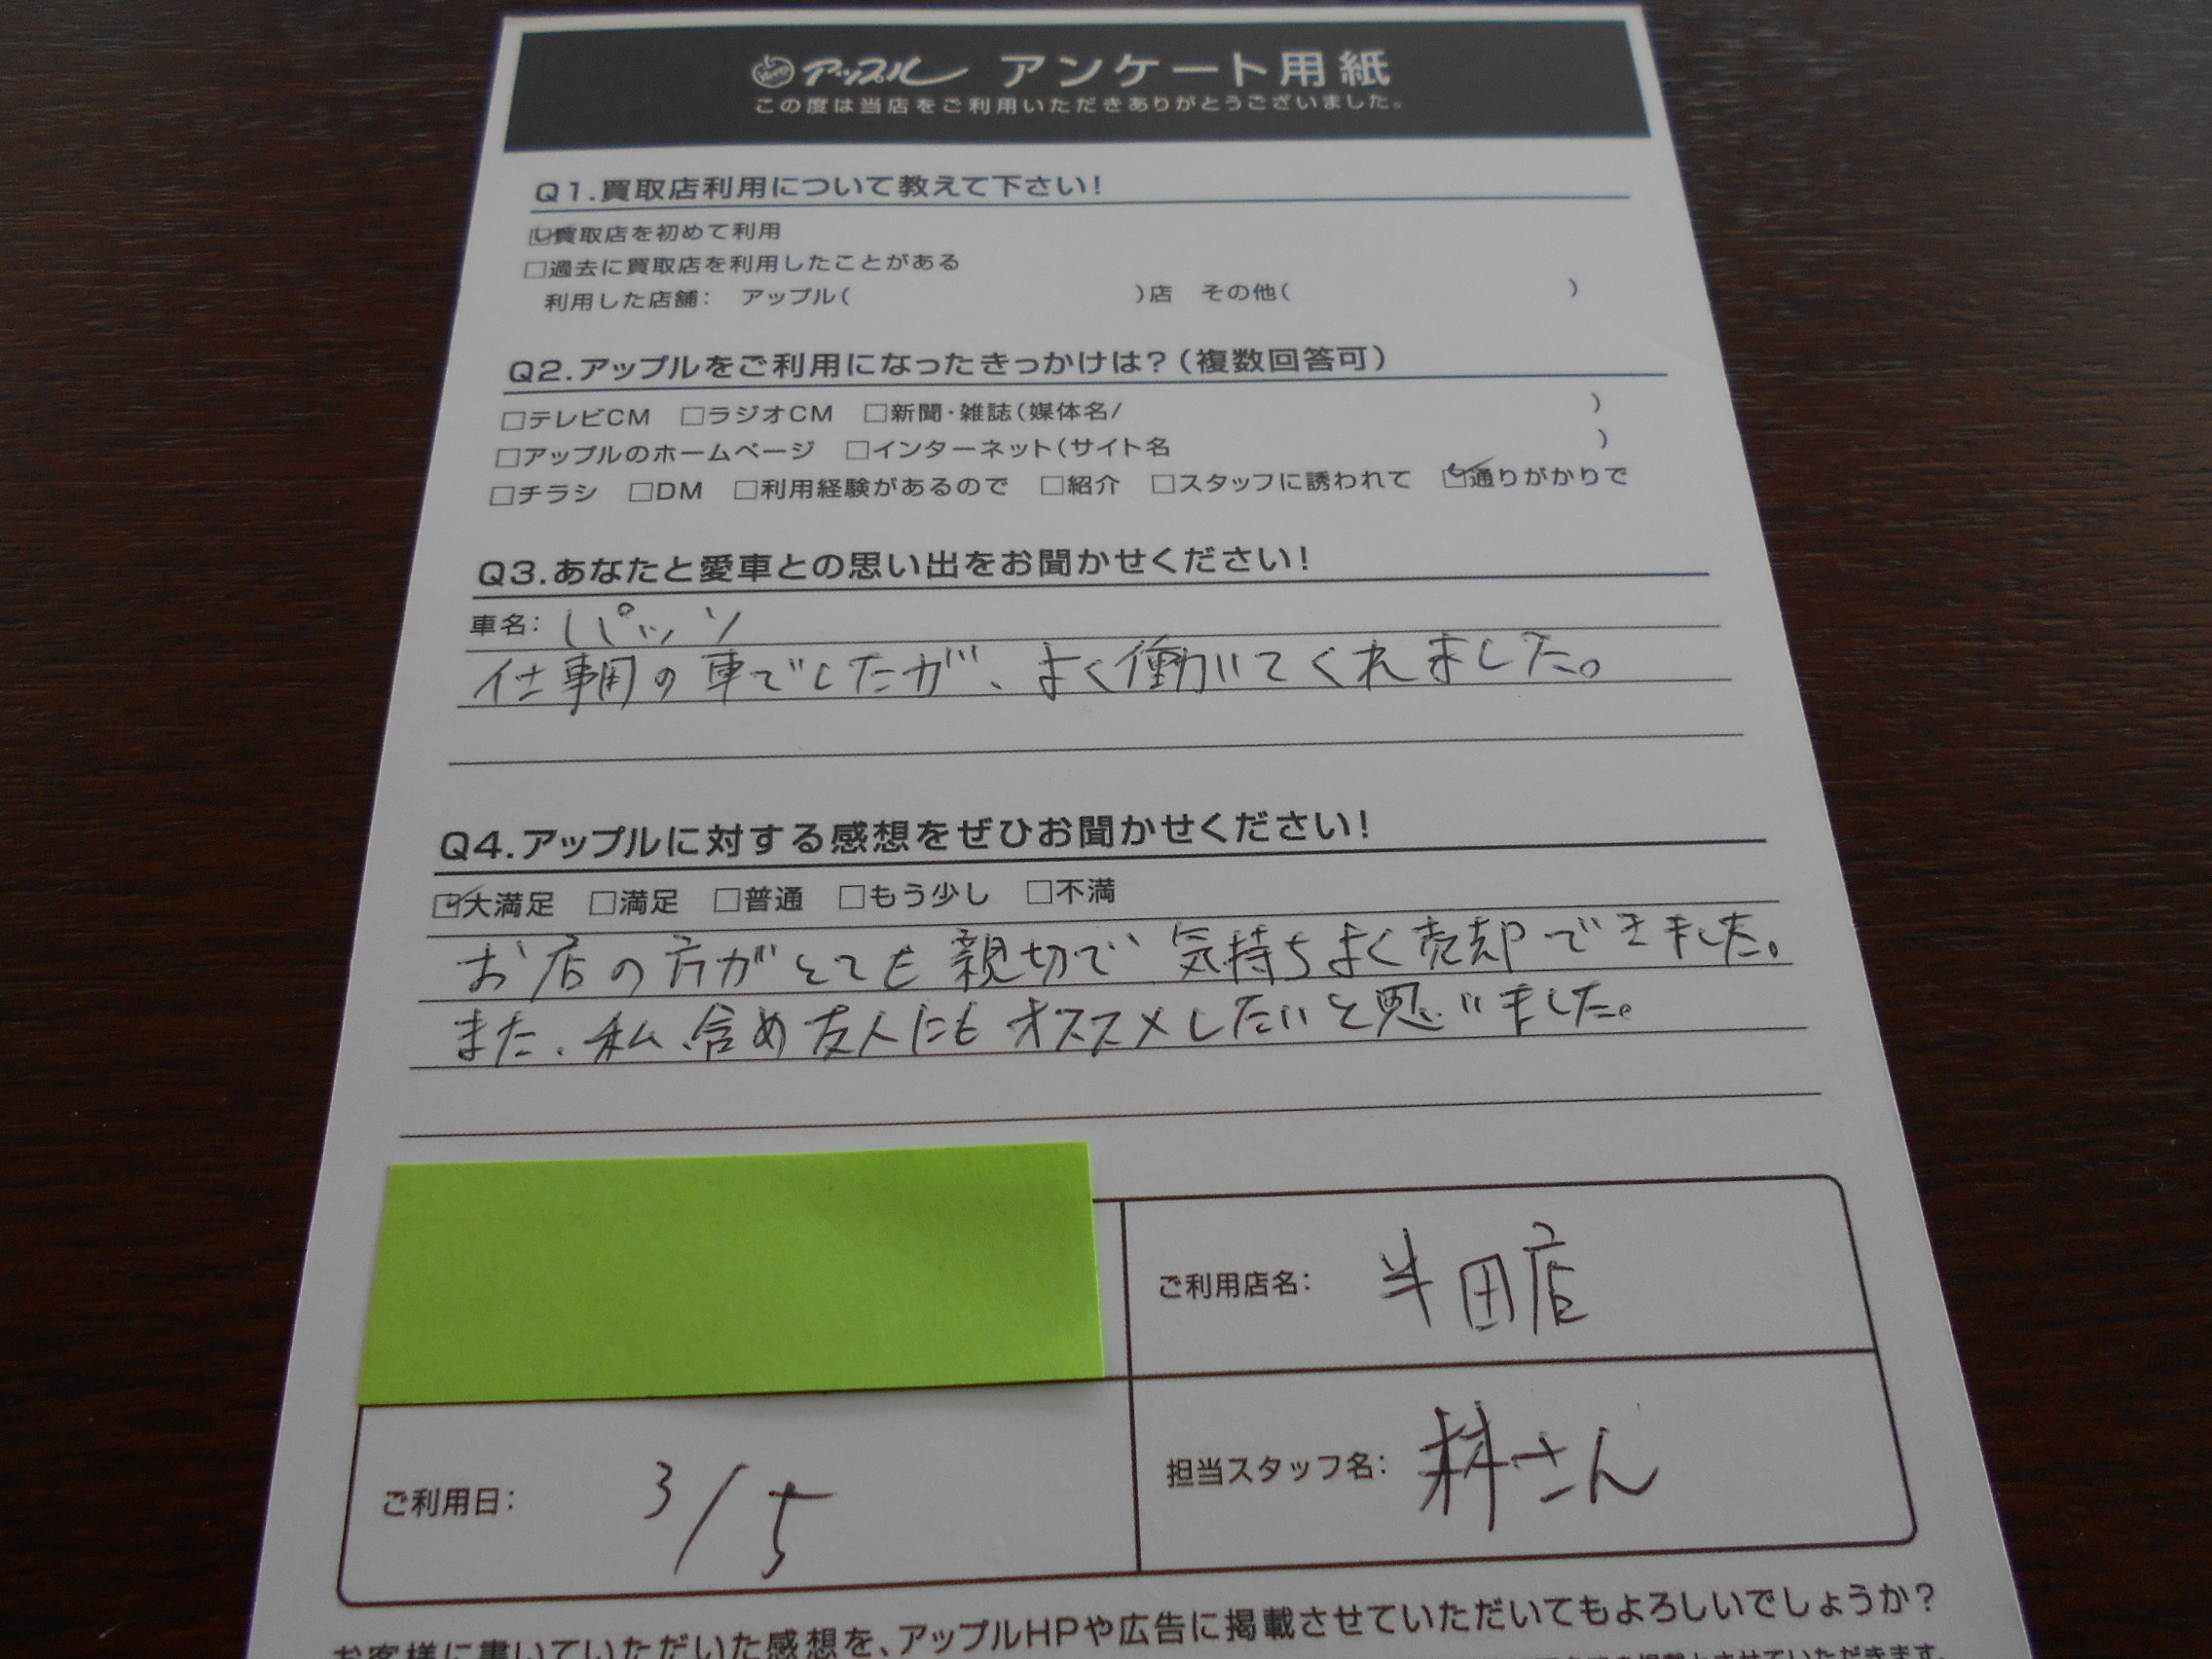 アップル アンケート用紙
この度は当店をご利用いただきありがとうございました。
Q1.買取店利用について教えて下さい!
☑買取店を初めて利用
□過去に買取店を利用したことがある
利用した店舗: アップル( )店 その他( )
Q2.アップルをご利用になったきっかけは?(複数回答可)
□テレビCM □ラジオCM □新聞・雑誌(媒体名/ )
□アップルのホームページ □インターネット(サイト名 )
□チラシ □DM □利用経験があるので □紹介 □スタッフに誘われて ☑通りがかりで
Q3.あなたと愛車との思い出をお聞かせください!
車名: パッソ
仕事用の車でしたが、よく働いてくれました。
Q4.アップルに対する感想をぜひお聞かせください!
☑大満足 □満足 □普通 □もう少し □不満
お店の方がとても親切で気持ちよく売却できました。
また、私含め友人にもオススメしたいと思いました。
ご利用店名: 半田店
ご利用日: 3/5
担当スタッフ名: さん
お客様に書いていただいた感想を、アップルHPや広告に掲載させていただいてもよろしいでしょうか?